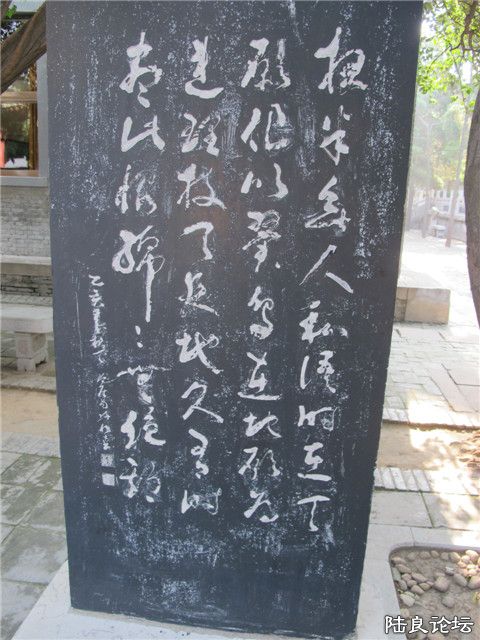 夜半無人私語時在天
願作比翼鳥在地願為
連理枝天長地久有時
盡此恨綿〻無絕期
乙亥
陆良论坛